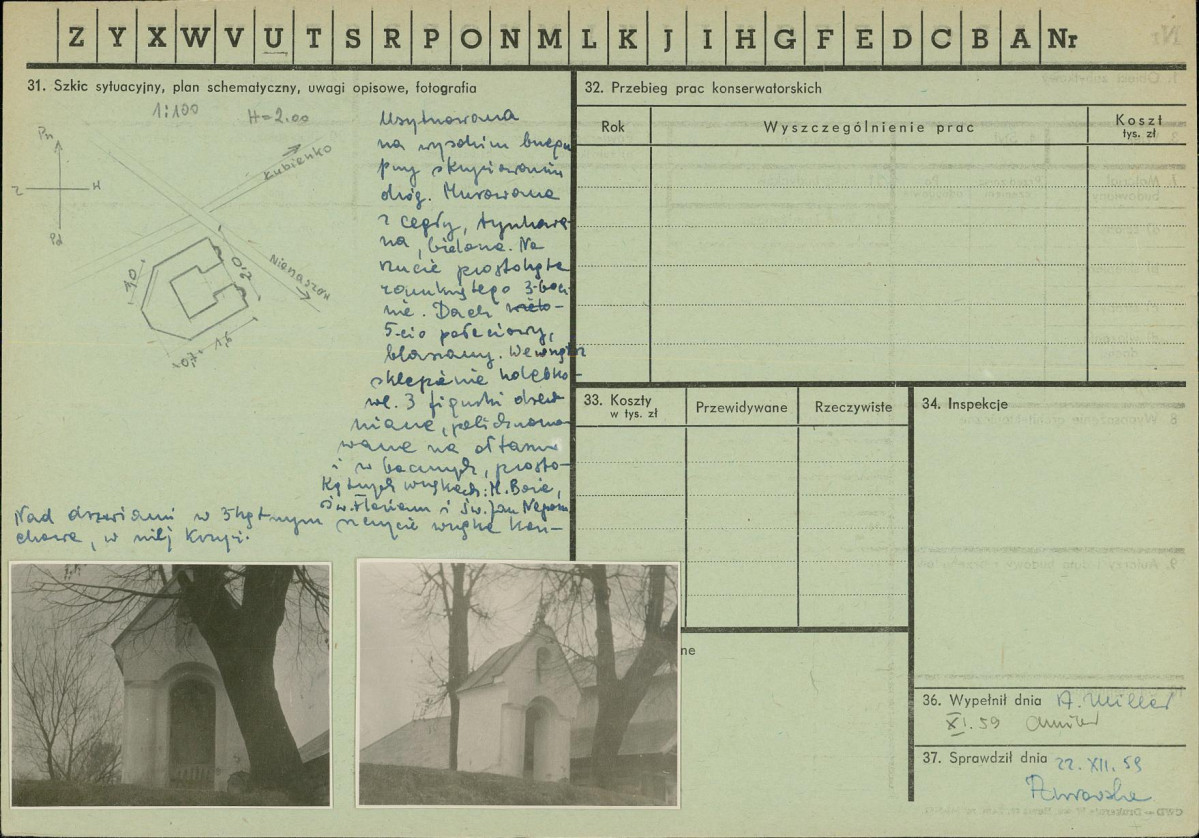 Z Y X W V U T S R P O N M L K J I H G F E D C B A Nr
31. Szkic sytuacyjny, plan schematyczny, uwagi opisowe, fotografia
1:100 H=2.00
Pn
Z
Pd
Łubienko
Nienaszów
1,0
0,2
1,6
Usytuowana
na wysokim brzegu
przy skrzyżowaniu
dróg. Murowana
z cegły, tynkowa-
na, bielona. Na
rzucie prostokąta
zamkniętego 3-bocz
nie. Dach wielo-
5-cio połaciowy,
blaszany. Wewnątrz
sklepienie kolebko-
we. 3 figurki drew
niane, polichromo
wane na ołtarzu
i w bocznych, prosto-
kątnych wnękach: M. Boża,
św. Florian i św. Jan Nepom
Nad drzwiami w 3kątnym szczycie wnęka kon-
chowa, w niej Krzyż.
32. Przebieg prac konserwatorskich
Rok
Wyszczególnienie prac
Koszt
tys. zł
33. Koszty
w tys. zł
Przewidywane
Rzeczywiste
34. Inspekcje
ne
36. Wypełnił dnia A. Miller
XI.59
37. Sprawdził dnia 22.XII.59